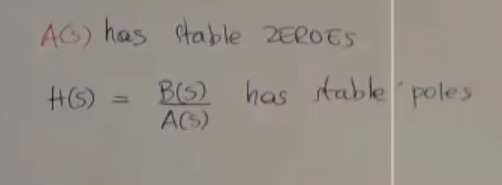 A(s) has stable ZEROES
H(s) = B(s)/A(s) has stable poles